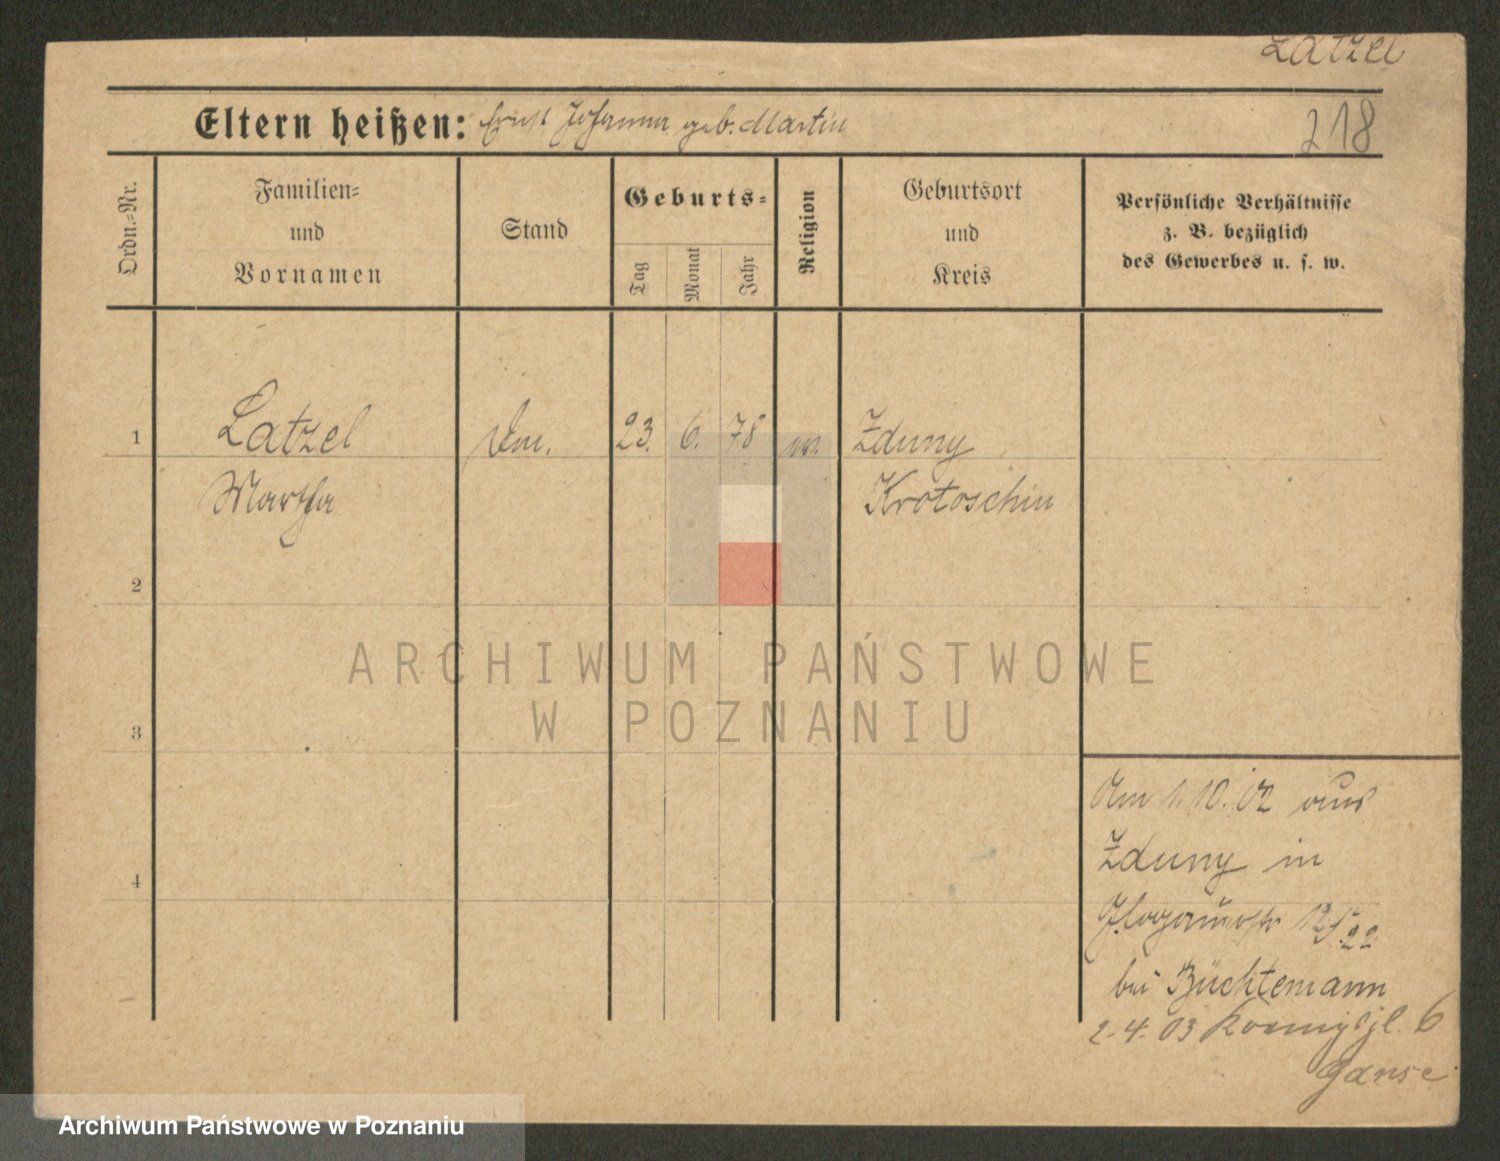 Latzel
Eltern heißen: Ernst Johanna geb. Martin
218
Ordn.-Nr.
Familien-
und
Vornamen
Stand
Geburts-
Tag
Monat
Jahr
Religion
Geburtsort
und
Kreis
Persönliche Verhältnisse
z. B. bezüglich
des Gewerbes u. s. w.
1
Latzel
23. 6. 78
Zduny
Martha
Krotoschin
2
3
4
Am 1.10.02 aus
Zduny in
bei Büchtemann
2.4.03 6
Ganse
ARCHIWUM PAŃSTWOWE
W POZNANIU
Archiwum Państwowe w Poznaniu